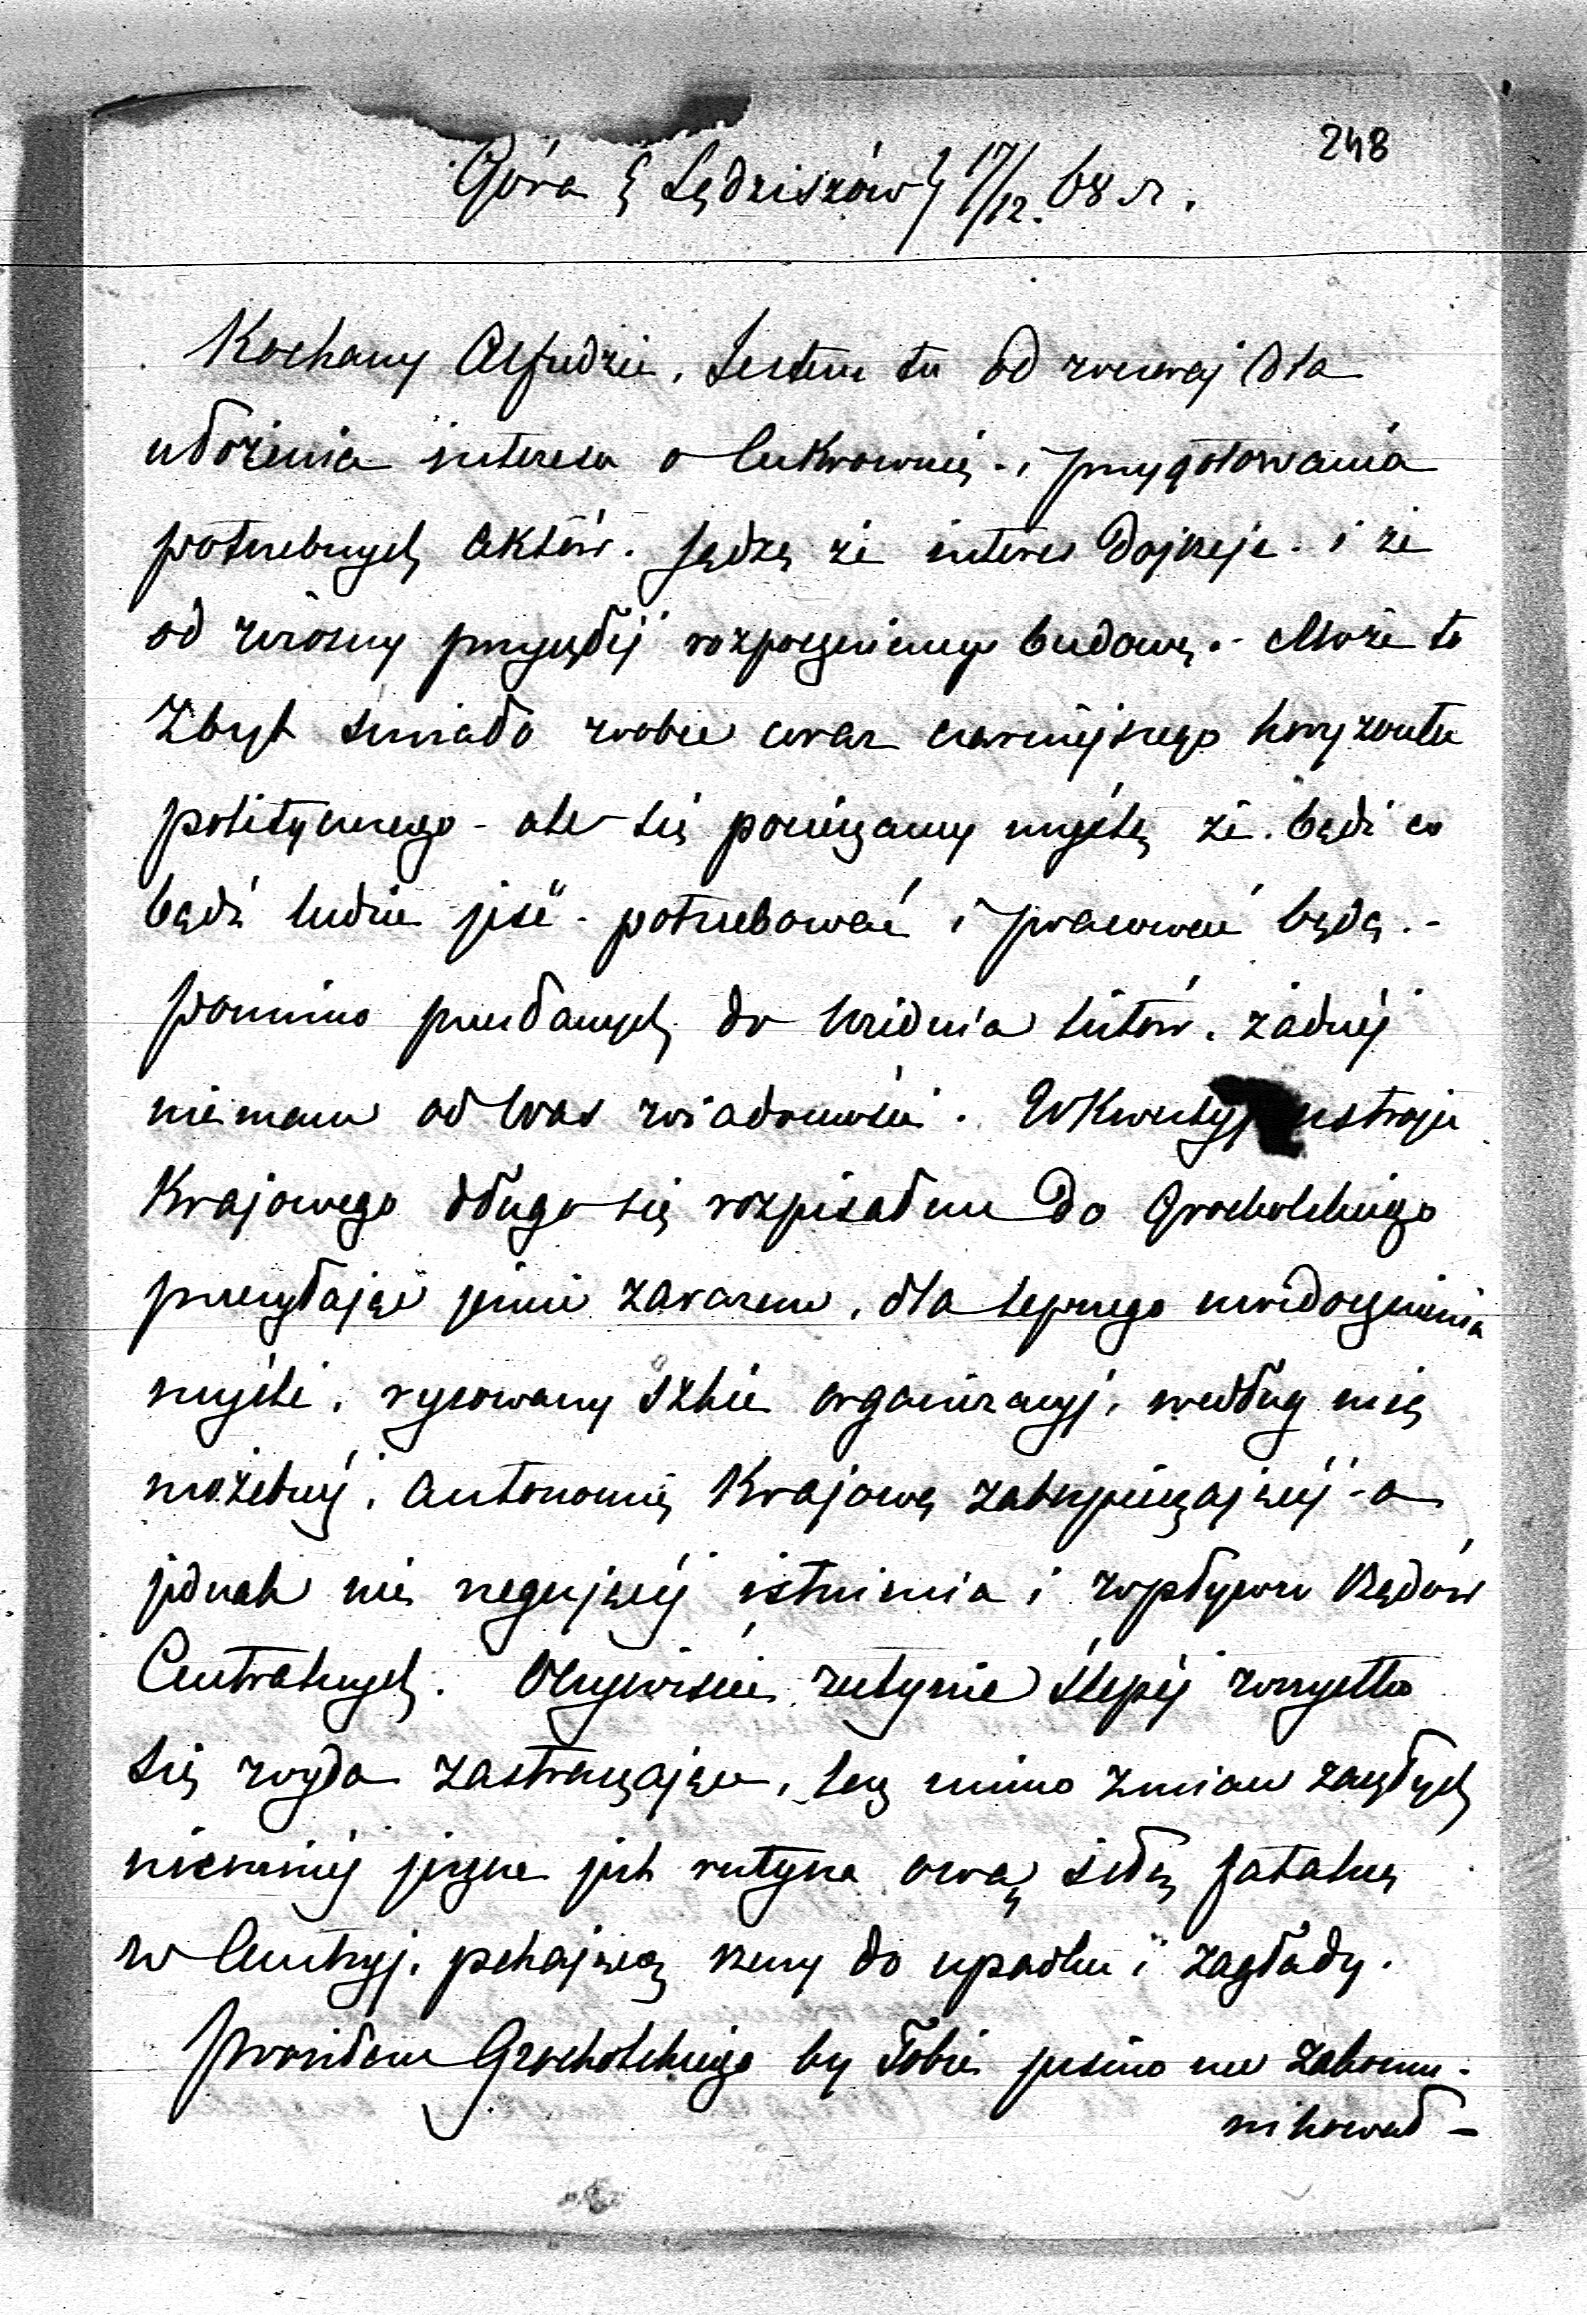 248
Góra (Sędziszów) 17/12. 68 r.
Kochany Alfredzie. Jestem tu od wczoraj dla
ułożenia interesu o Cukrownię - i przygotowania
potrzebnych aktów. Sądzę że interes dojrzeje - i że
od wiosny przyszłéj rozpoczniemy budowę. - Może to
zbyt śmiało wobec coraz czarniejszego horyzontu
politycznego - ale się pocieszamy myślą że. bądź co
bądź ludzie jeść - potrzebować i pracować będą. -
Pomimo przesłanych do Wiednia listów, żadnéj
niemam od Was wiadomości. W Kwestyj ustroju
Krajowego długo się rozpisałem do Grocholskiego
przesyłając jemu zarazem, dla lepszego uwidocznienia
myśli, rysowany szkic organizacyj, według mię
możebnéj, autonomię Krajową zabezpieczającéj - a
jednak nie negującéj istnienia i wpływu Rządów
Centralnych. Oczywiście rutynie ślepéj wszystko
się wyda zastraszające, lecz mimo zmian zaszłych
niemniéj jeszcze jest rutyna ową siłą fatalną
w Austryj, pchającą rzeczy do upadku i zagłady.
Prosiłem Grocholskiego by Tobie pismo me zakomu-
nikował -